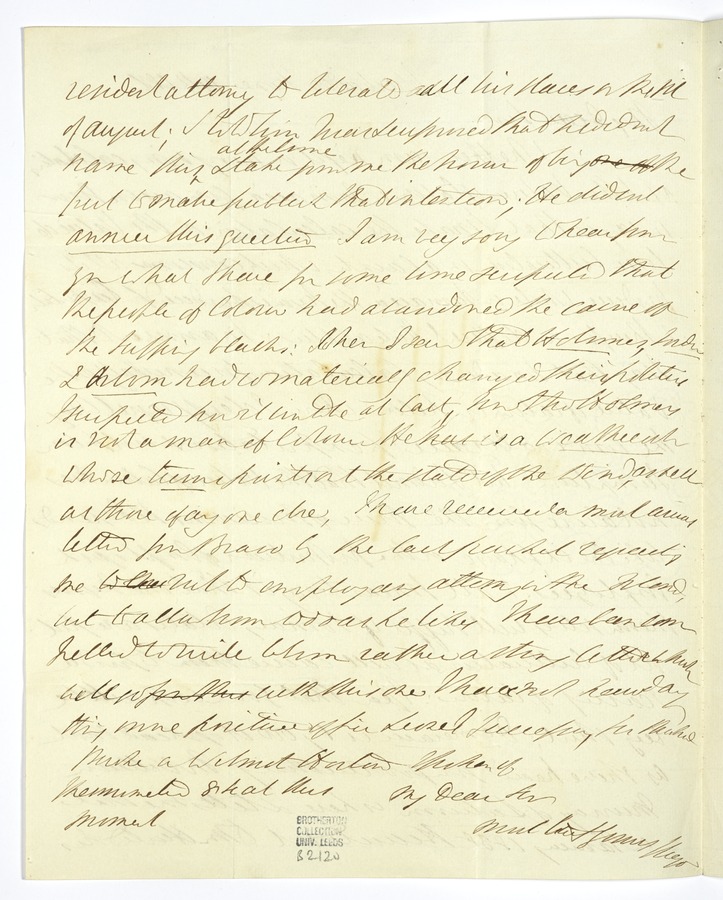 resident attorney to liberate all his slaves on the 1st
of august; I told him I was surprised that he did not
name this, at the same
take from me the honor of being one of the
first to make public that intention; He did not
answer this question I am very sorry to hear from
you what I have for some time suspected that
the people of Colour had abandoned the cause of
the suffering blacks: When I saw that Holmes,
& had so materially changed their politics
I suspected how it would be at last, for tho' Holmes
is not a man of Colour He has is a weathercock
whose turns points out the state of the Wind, as well
as those of any one else, I have received a most
letter from Bravo by the last packet requesting
me not to employ any attorney in the Island,
but to allow him to do as he likes I have been com
pelled to write to him rather a strong letter which
will go with this one I have not heard any
thing more positive of Sir Successor, Sir
a Wilmot Horton spoken of
& at this My Dear Sir
moment
most truly yours Sligo
BROTHERTON
COLLECTION
UNIV. LEEDS
B 2120